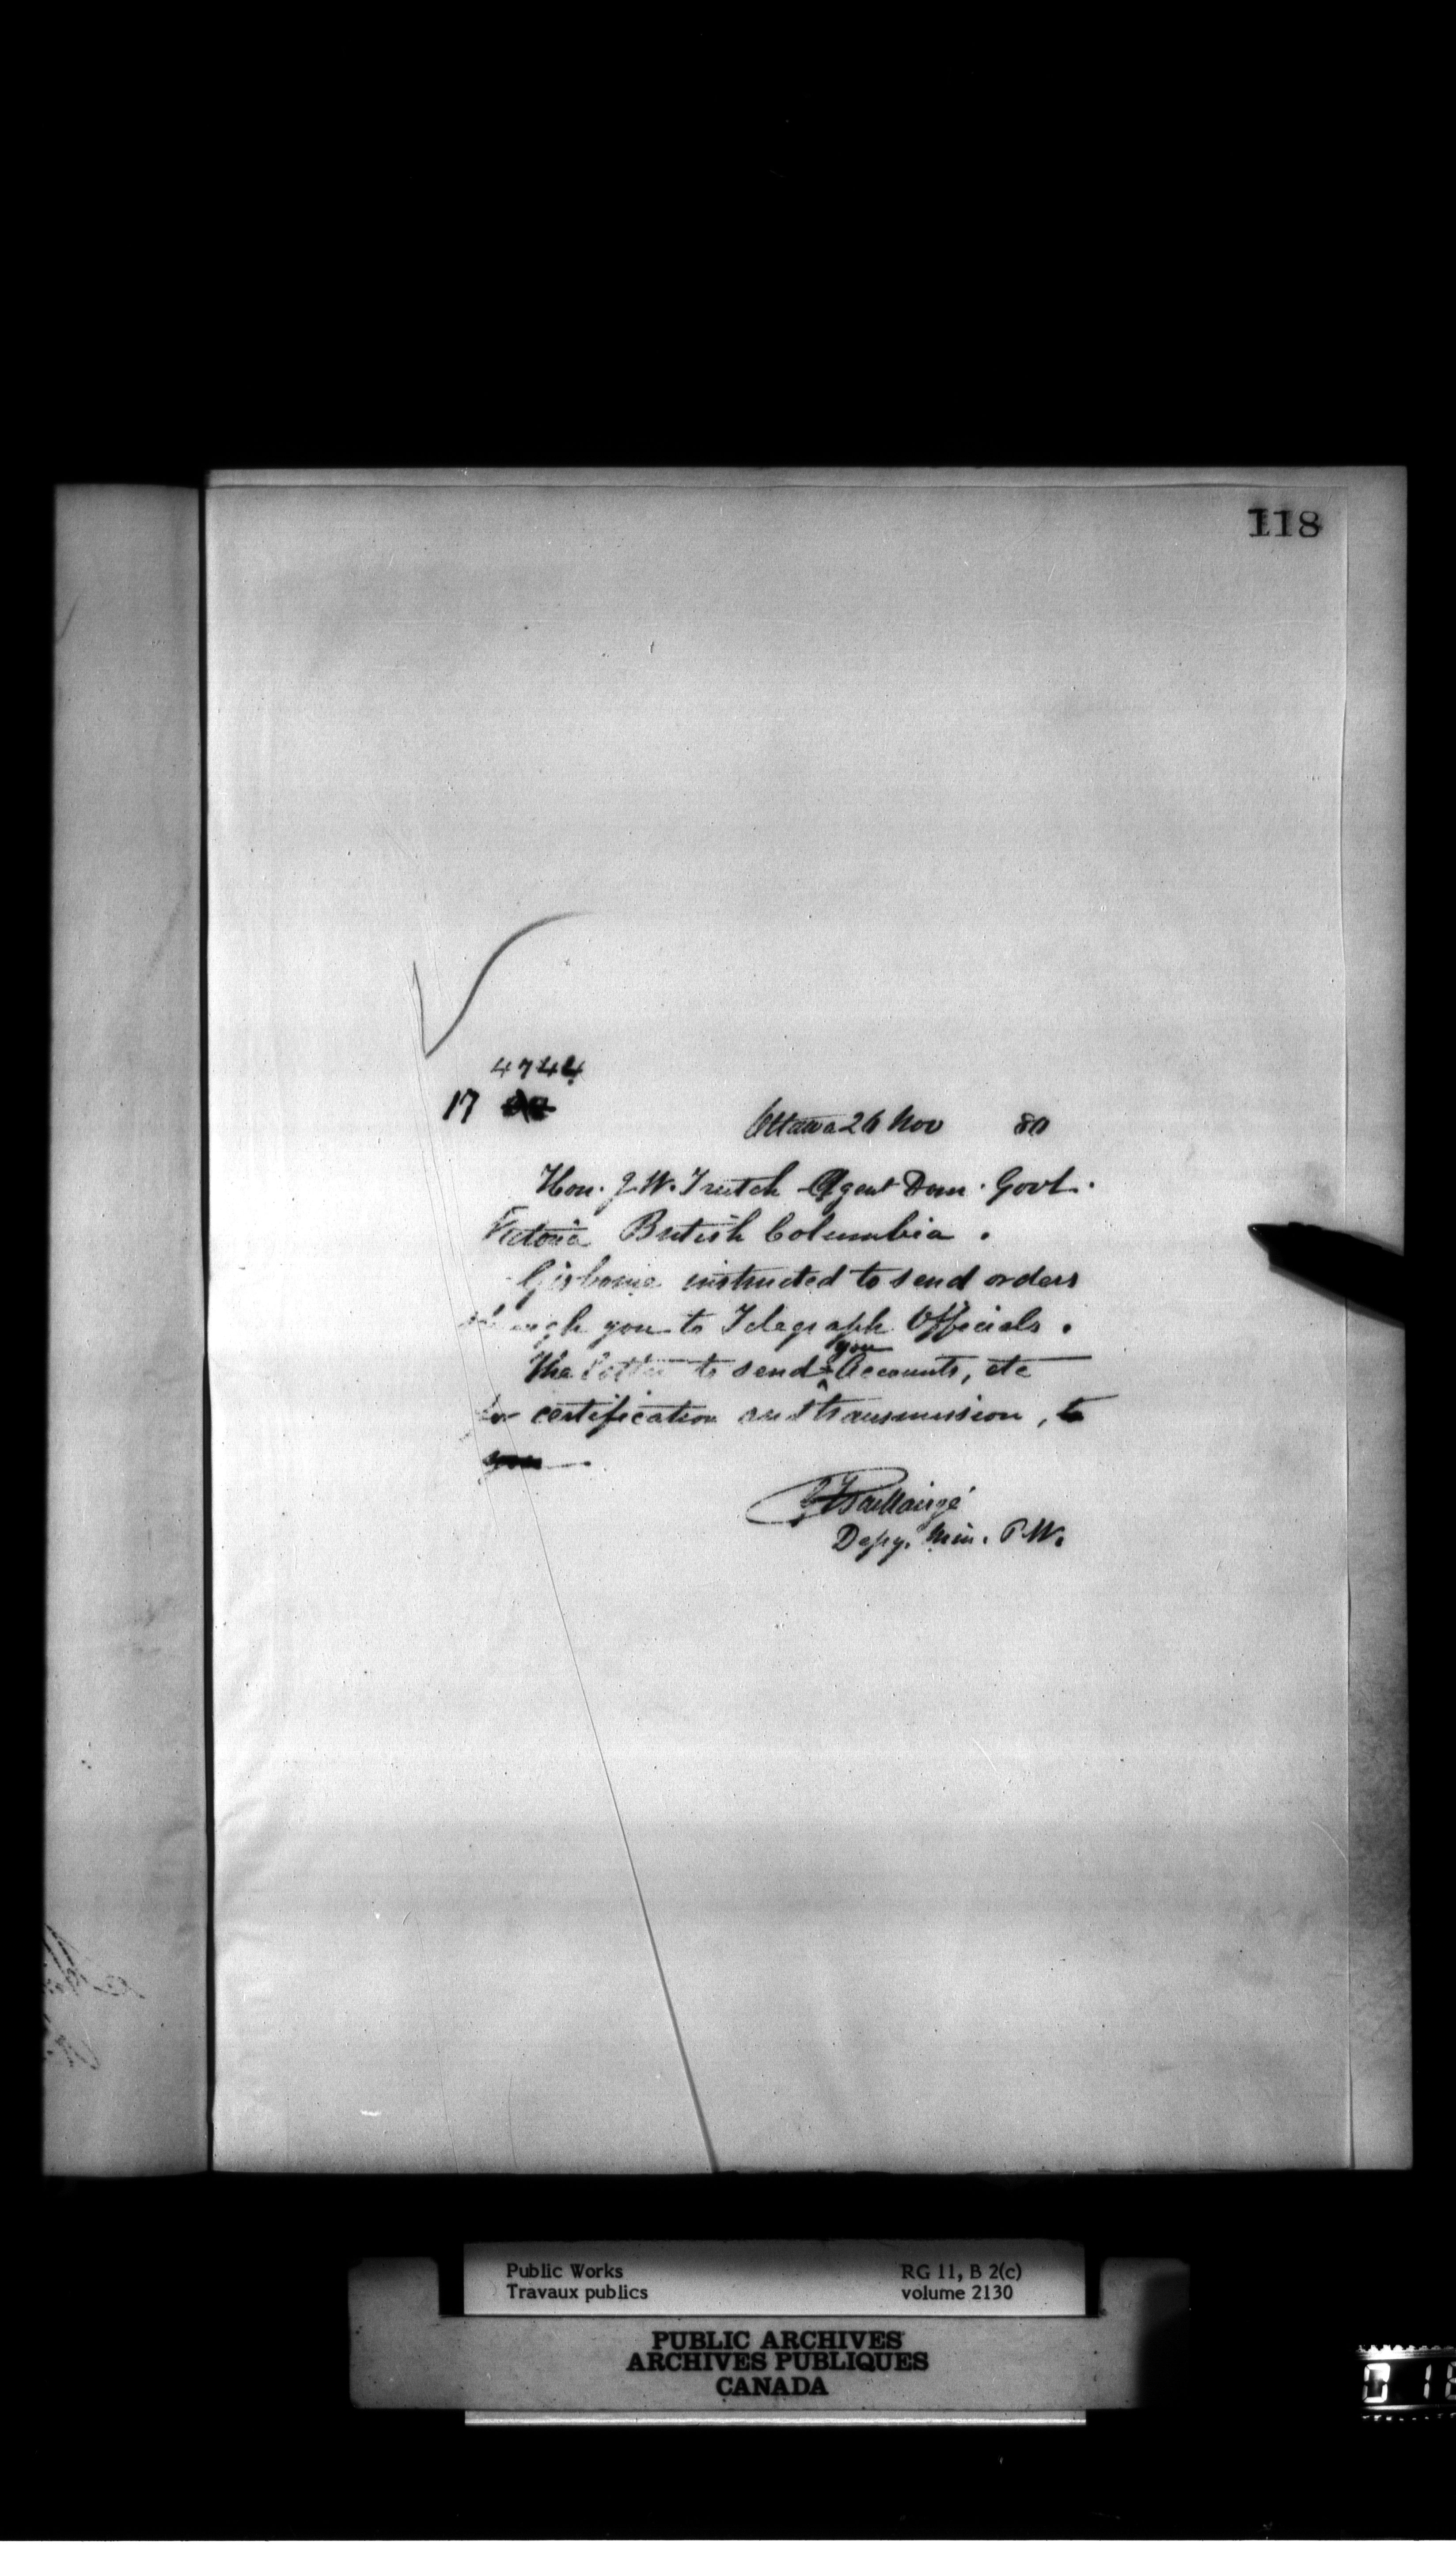 118
4744
17
Ottawa 26 Nov 80
Hon. J. W. Trutch Agent Dom. Govt.
Victoria British Columbia.
Gisborne instructed to send orders
through you to Telegraph Officials.
The latter to send you Accounts, etc
for certification and transmission, to
you.
G F Baillairgé
Depy. Min. P. W.
Public Works
Travaux publics
RG 11, B 2(c)
volume 2130
PUBLIC ARCHIVES
ARCHIVES PUBLIQUES
CANADA